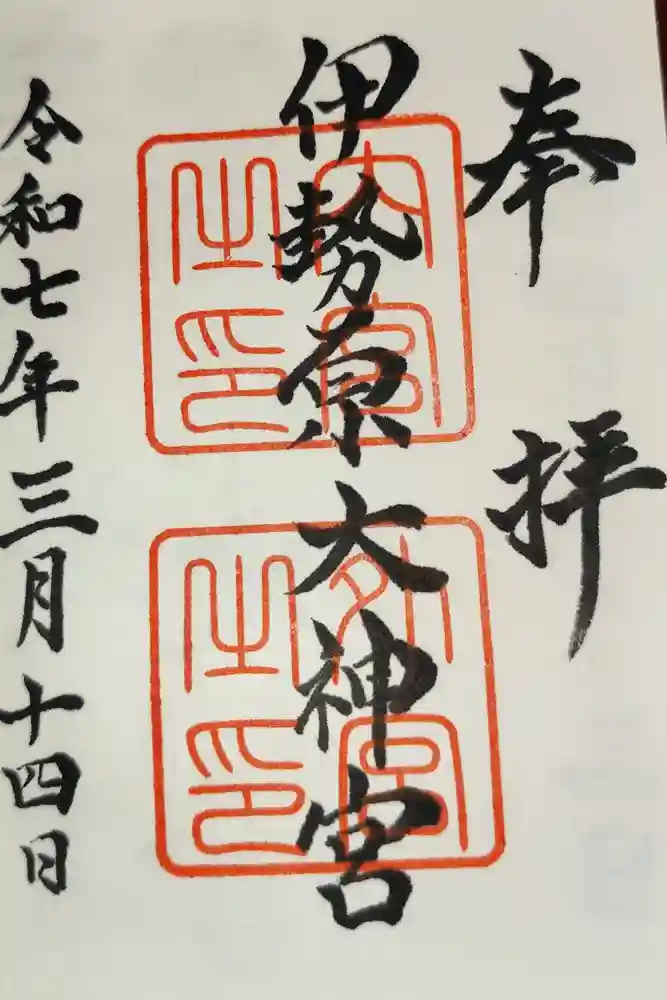 奉拝
伊勢原大神宮
内宮之印
外宮之印
令和七年三月十四日